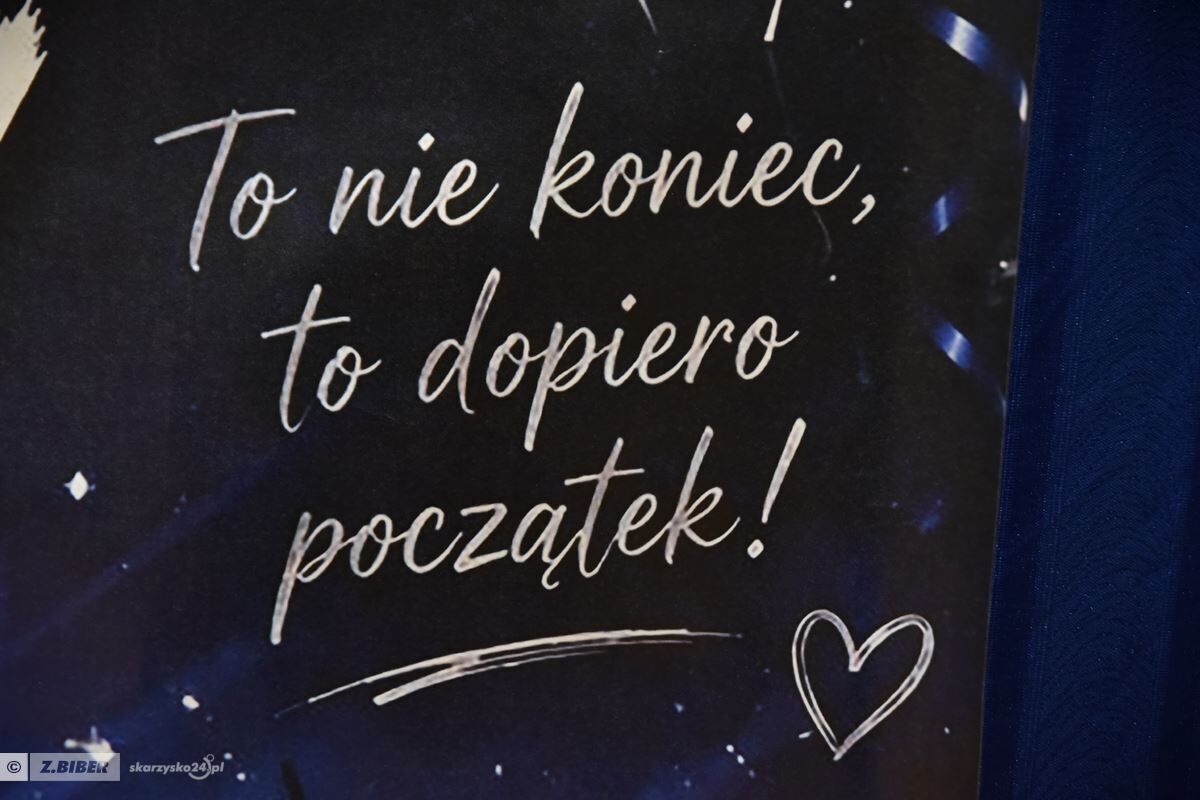 To nie koniec,
to dopiero
początek!
© Z.BIBER skarzysko24.pl